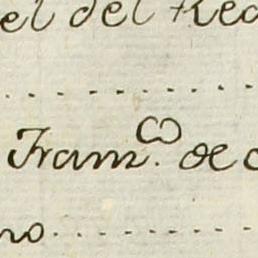 el del Rea
Fran.co de
no